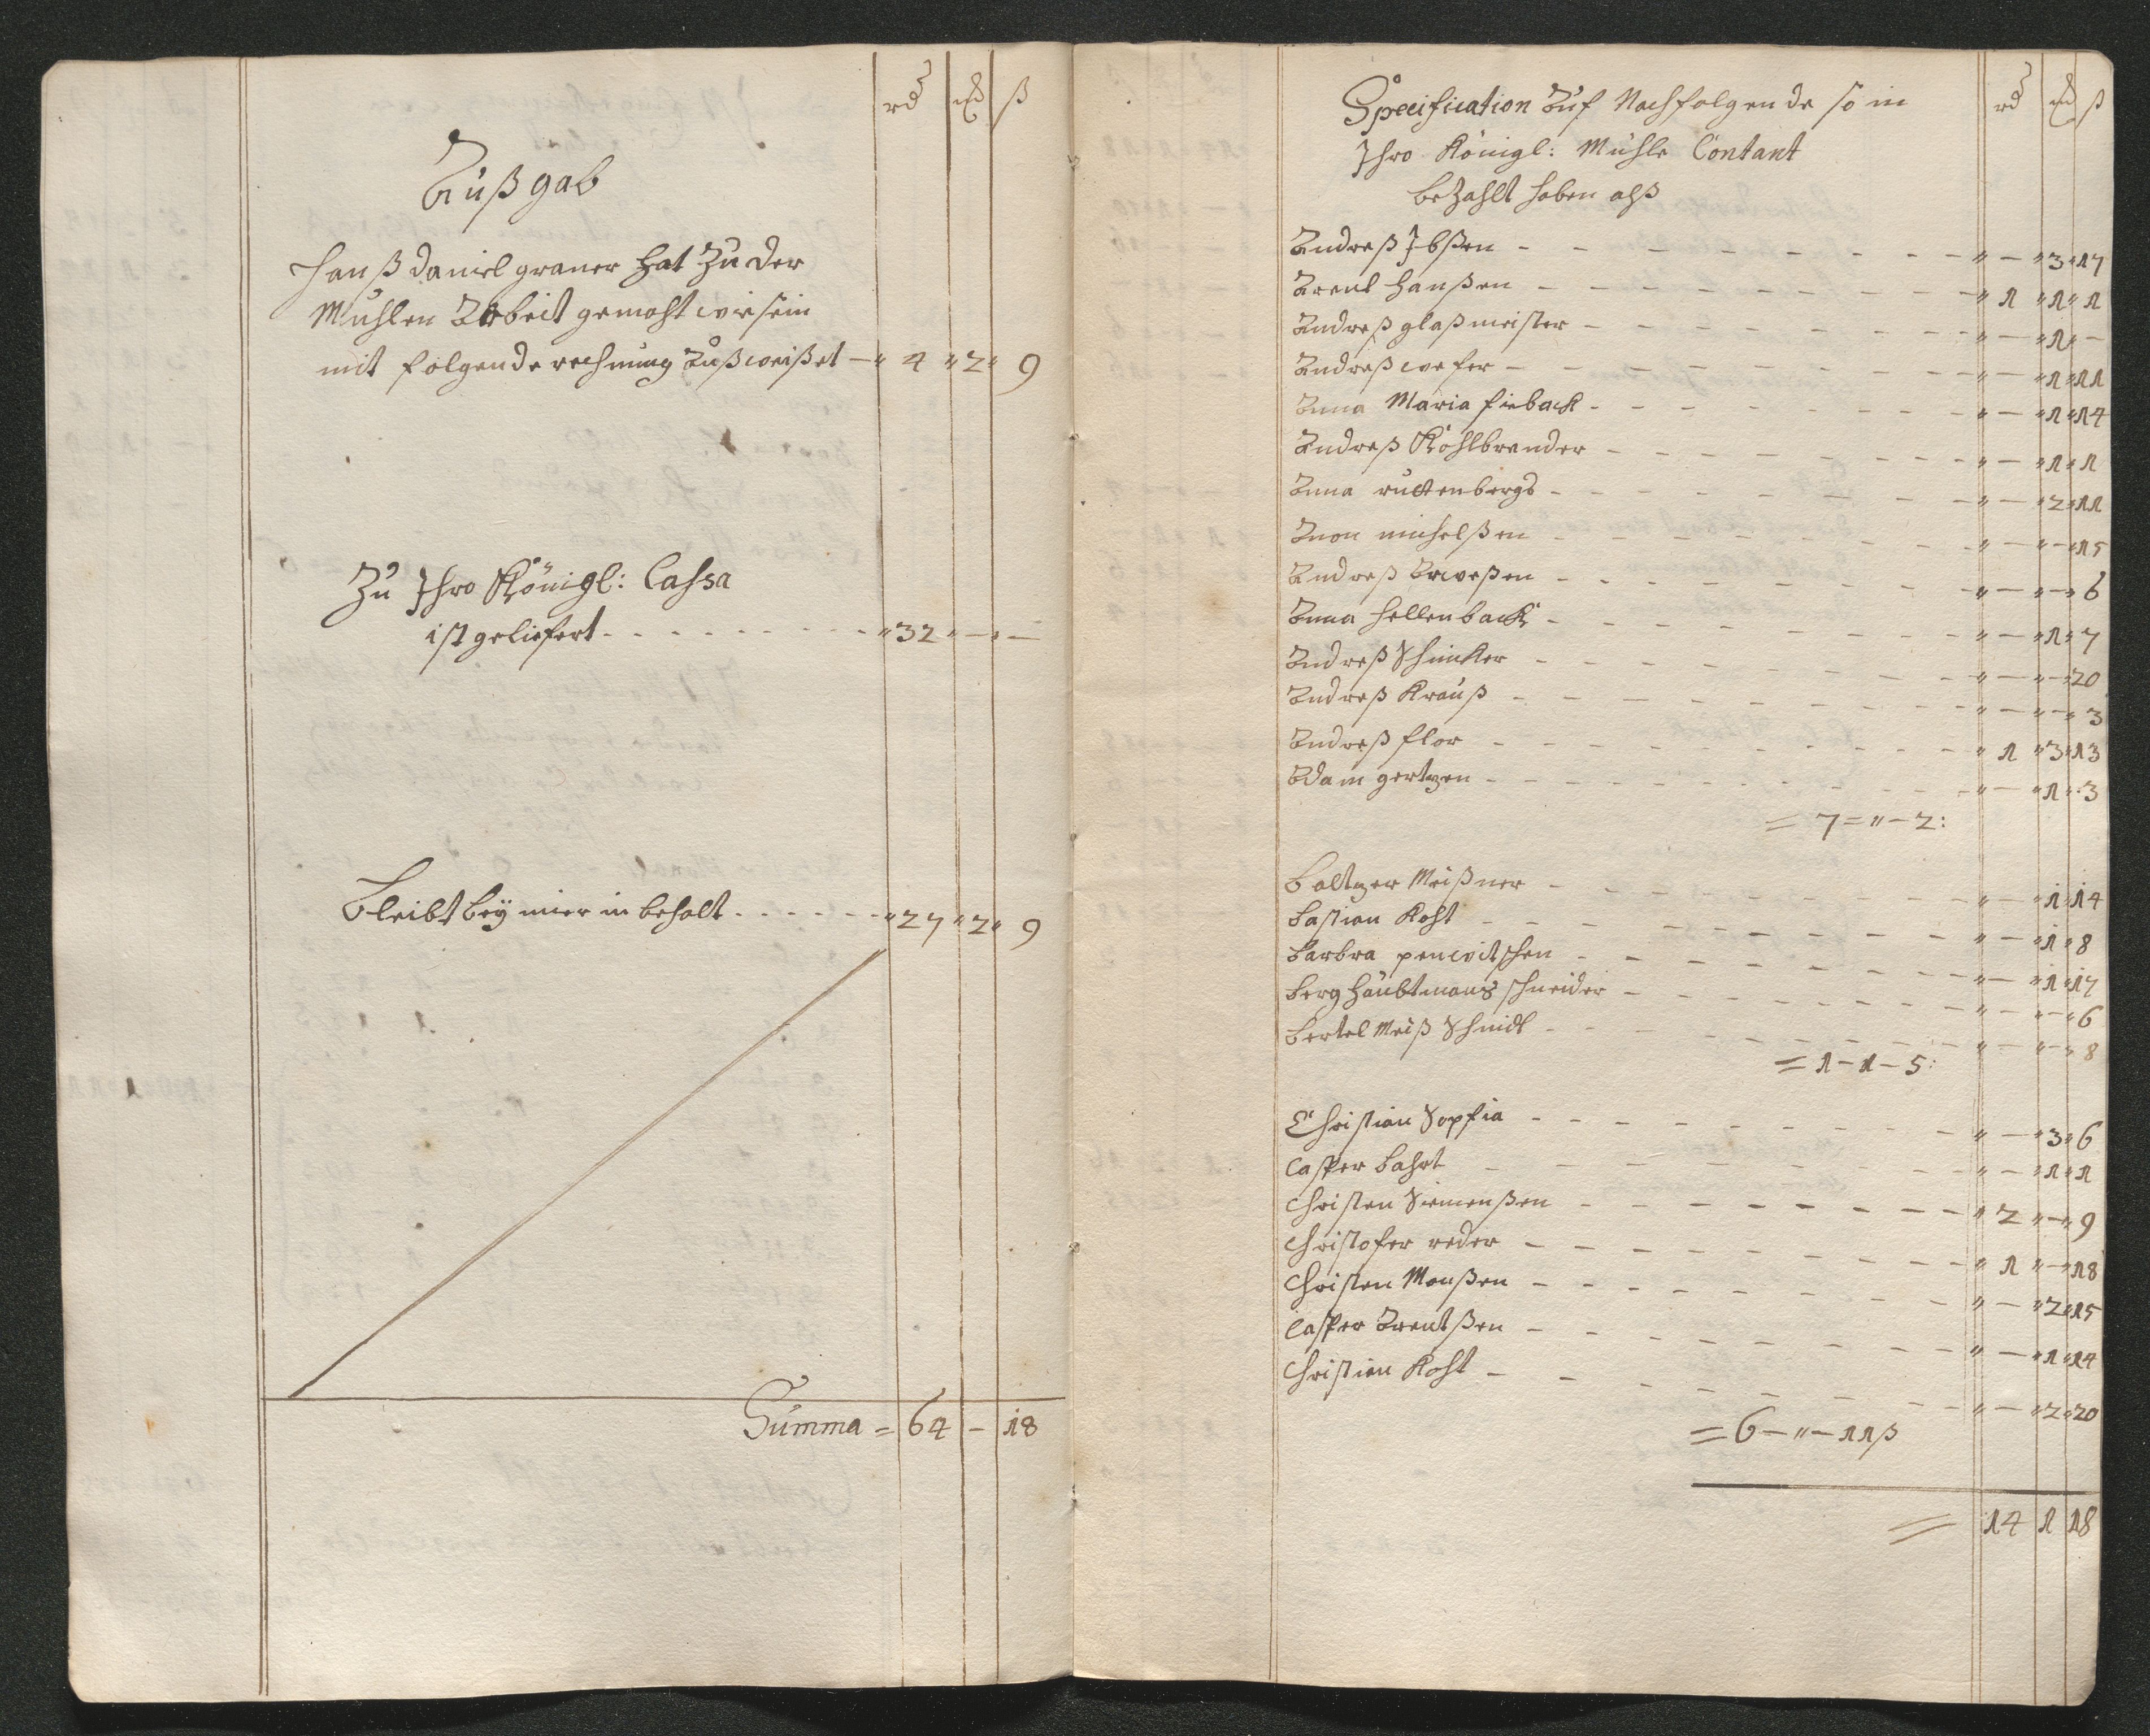 rd mk ß
Außgab
Hanß Daniel graner Hat Zu der
Mühlen Arbeit gemaht wie sein
mit folgende rechnung Außweißet — " 4 " 2 " 9
Zu Ihro Königl: Cassa
ist geliefert - - - - - - - - - " 32 " — " —
Bleibt beÿ mier in behalt - - - - - " 27 " 2 " 9
Summa = 64 - 18
Specification Auf Nachfolgende so in rd mk ß
Ihro Königl: Mühle Contant
bezahlt haben alß
Andreß Ibßen - - - " — " 3 " 17
Arent Hanßen - - - " 1 " 1 " 1
Andreß glaßmeister - - - " — " 1 " —
Andreß wefer - - - " — " 1 " 11
Anna Maria fieback - - - " — " 1 " 14
Andreß Kohlbrender - - - " — " 1 " 1
Anna ruttenbergs - - - " — " 2 " 11
Anon michelßen - - - " — " — " 15
Andreß Arweßen - - - " — " — " 6
Anna Hellenback - - - " — " 1 " 7
Andreß Schincker - - - " — " — " 20
Andreß Krauß - - - " — " — " 3
Andreß flor - - - " 1 " 3 " 13
Adam gertzen - - - " — " 1 " 3
= 7 = " — 2:
Baltzer Meißner - - - " — " 1 " 14
Bastian Koht - - - " — " 1 " 8
Barbra penwitschen - - - " — " 1 " 17
Berg Haubtmans schneider - - - " — " — " 6
Bertel Meiß Schmidt - - - " — " — " 8
= 1 - 1 - 5:
Christian Sopfia - - - " — " 3 " 6
Casper Bahrt - - - " — " 1 " 1
Christen Siemenßen - - - " 2 " — " 9
Christofer reder - - - " 1 " — " 18
Christen Monßen - - - " — " 2 " 15
Casper Arentßen - - - " — " 1 " 14
Christian Koht - - - " — " 2 " 20
= 6 — " — 11 ß
= 14 1 18